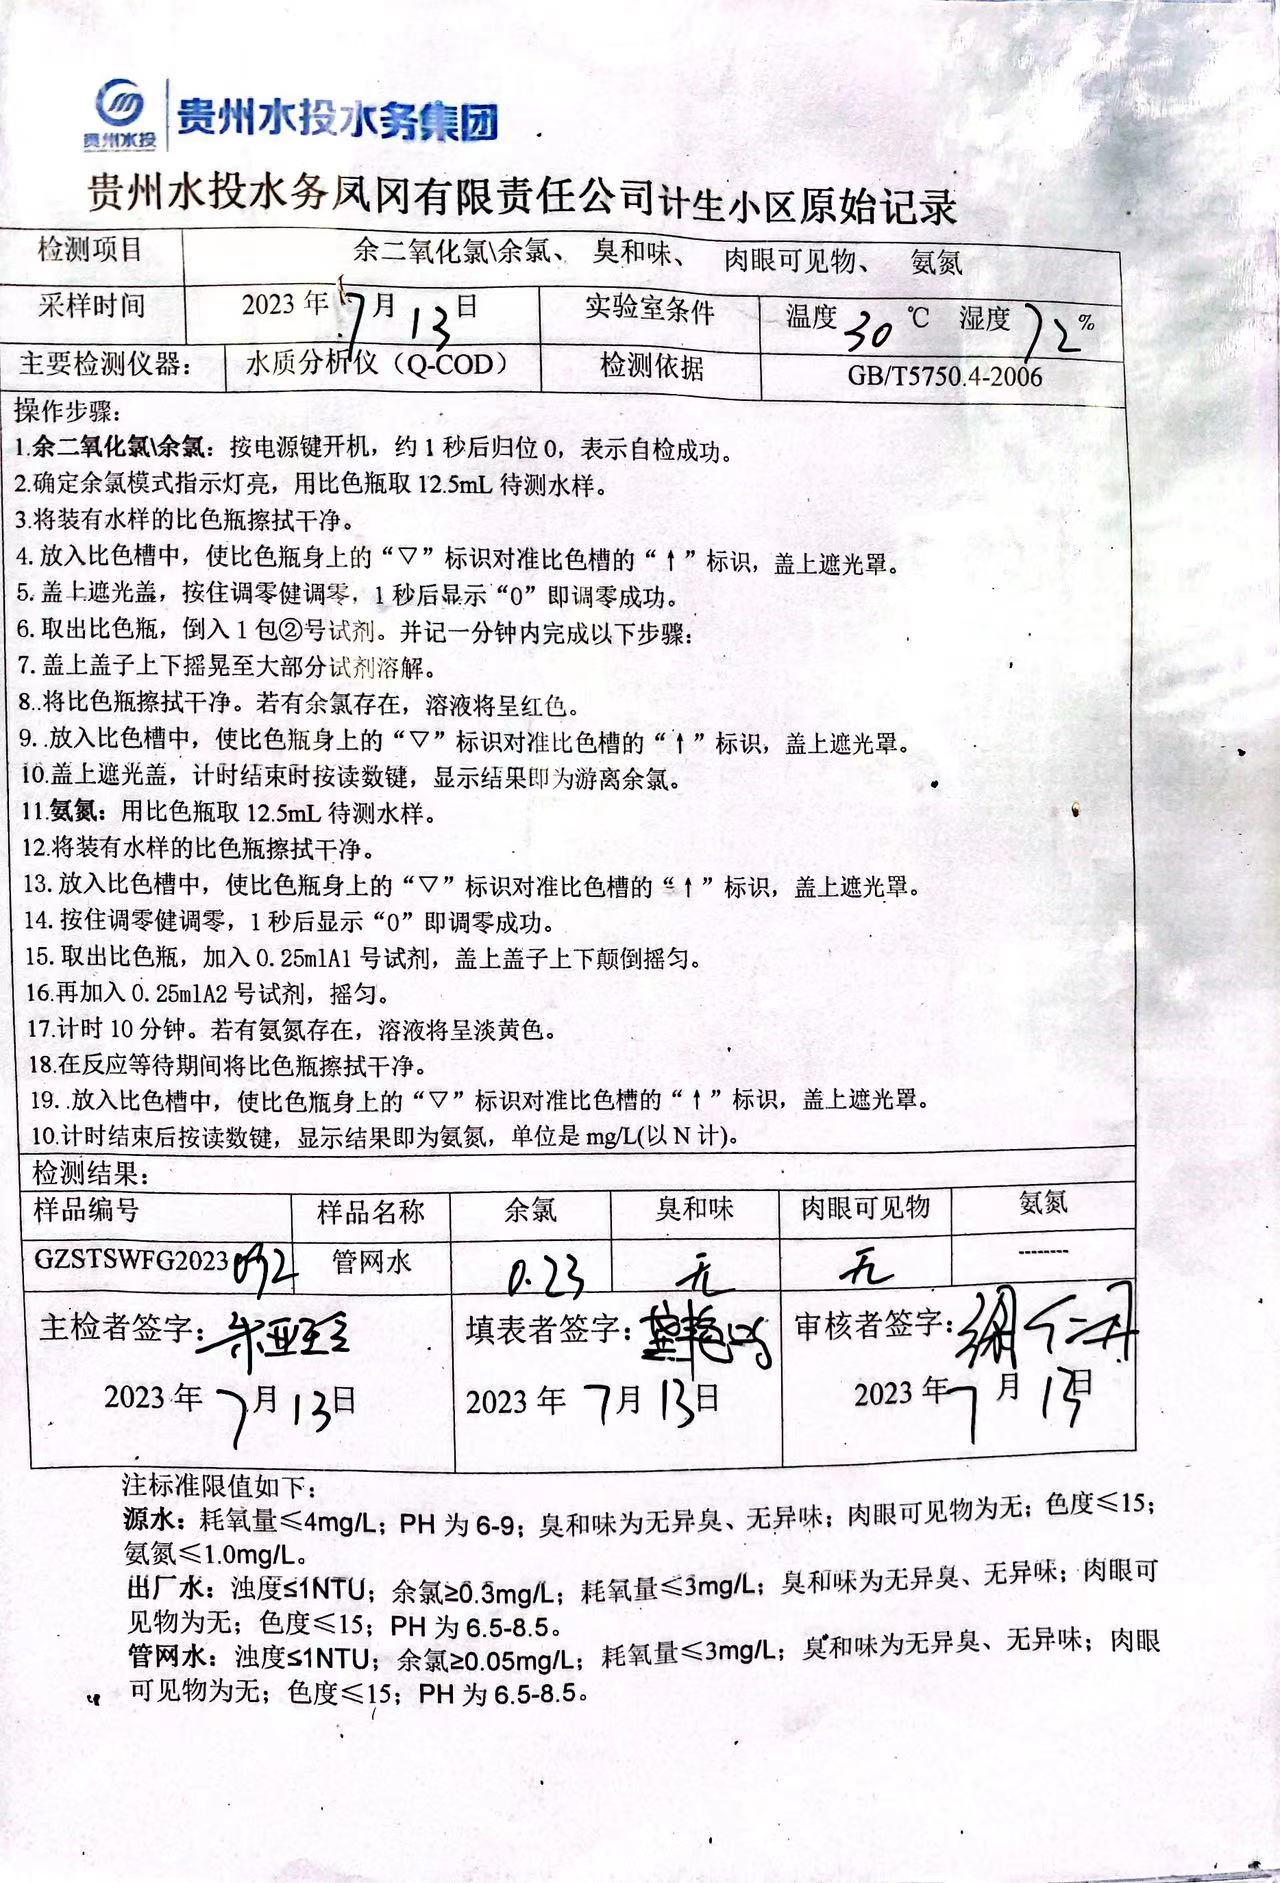 贵州水投 贵州水投水务集团
贵州水投水务凤冈有限责任公司计生小区原始记录
检测项目 余二氧化氯\余氯、 臭和味、 肉眼可见物、 氨氮
采样时间 2023年7月13日 实验室条件 温度30℃ 湿度72%
主要检测仪器： 水质分析仪（Q-COD） 检测依据 GB/T5750.4-2006
操作步骤：
1.余二氧化氯\余氯：按电源键开机，约1秒后归位0，表示自检成功。
2.确定余氯模式指示灯亮，用比色瓶取12.5mL待测水样。
3.将装有水样的比色瓶擦拭干净。
4. 放入比色槽中，使比色瓶身上的“▽”标识对准比色槽的“↑”标识，盖上遮光罩。
5. 盖上遮光盖，按住调零健调零，1秒后显示“0”即调零成功。
6. 取出比色瓶，倒入1包②号试剂。并记一分钟内完成以下步骤：
7. 盖上盖子上下摇晃至大部分试剂溶解。
8..将比色瓶擦拭干净。若有余氯存在，溶液将呈红色。
9. .放入比色槽中，使比色瓶身上的“▽”标识对准比色槽的“↑”标识，盖上遮光罩。
10.盖上遮光盖，计时结束时按读数键，显示结果即为游离余氯。
11.氨氮：用比色瓶取12.5mL待测水样。
12.将装有水样的比色瓶擦拭干净。
13. 放入比色槽中，使比色瓶身上的“▽”标识对准比色槽的“↑”标识，盖上遮光罩。
14. 按住调零健调零，1秒后显示“0”即调零成功。
15. 取出比色瓶，加入0.25mlA1号试剂，盖上盖子上下颠倒摇匀。
16.再加入0.25mlA2号试剂，摇匀。
17.计时10分钟。若有氨氮存在，溶液将呈淡黄色。
18.在反应等待期间将比色瓶擦拭干净。
19. .放入比色槽中，使比色瓶身上的“▽”标识对准比色槽的“↑”标识，盖上遮光罩。
10.计时结束后按读数键，显示结果即为氨氮，单位是mg/L(以N计)。
检测结果：
样品编号 样品名称 余氯 臭和味 肉眼可见物 氨氮
GZSTSWFG2023092 管网水 0.23 无 无 --------
主检者签字： 填表者签字： 审核者签字：
2023年7月13日 2023年7月13日 2023年7月13日
注标准限值如下：
源水：耗氧量≤4mg/L；PH为6-9；臭和味为无异臭、无异味；肉眼可见物为无；色度≤15；
氨氮≤1.0mg/L。
出厂水：浊度≤1NTU；余氯≥0.3mg/L；耗氧量≤3mg/L；臭和味为无异臭、无异味；肉眼可
见物为无；色度≤15；PH为6.5-8.5。
管网水：浊度≤1NTU；余氯≥0.05mg/L；耗氧量≤3mg/L；臭和味为无异臭、无异味；肉眼
可见物为无；色度≤15；PH为6.5-8.5。